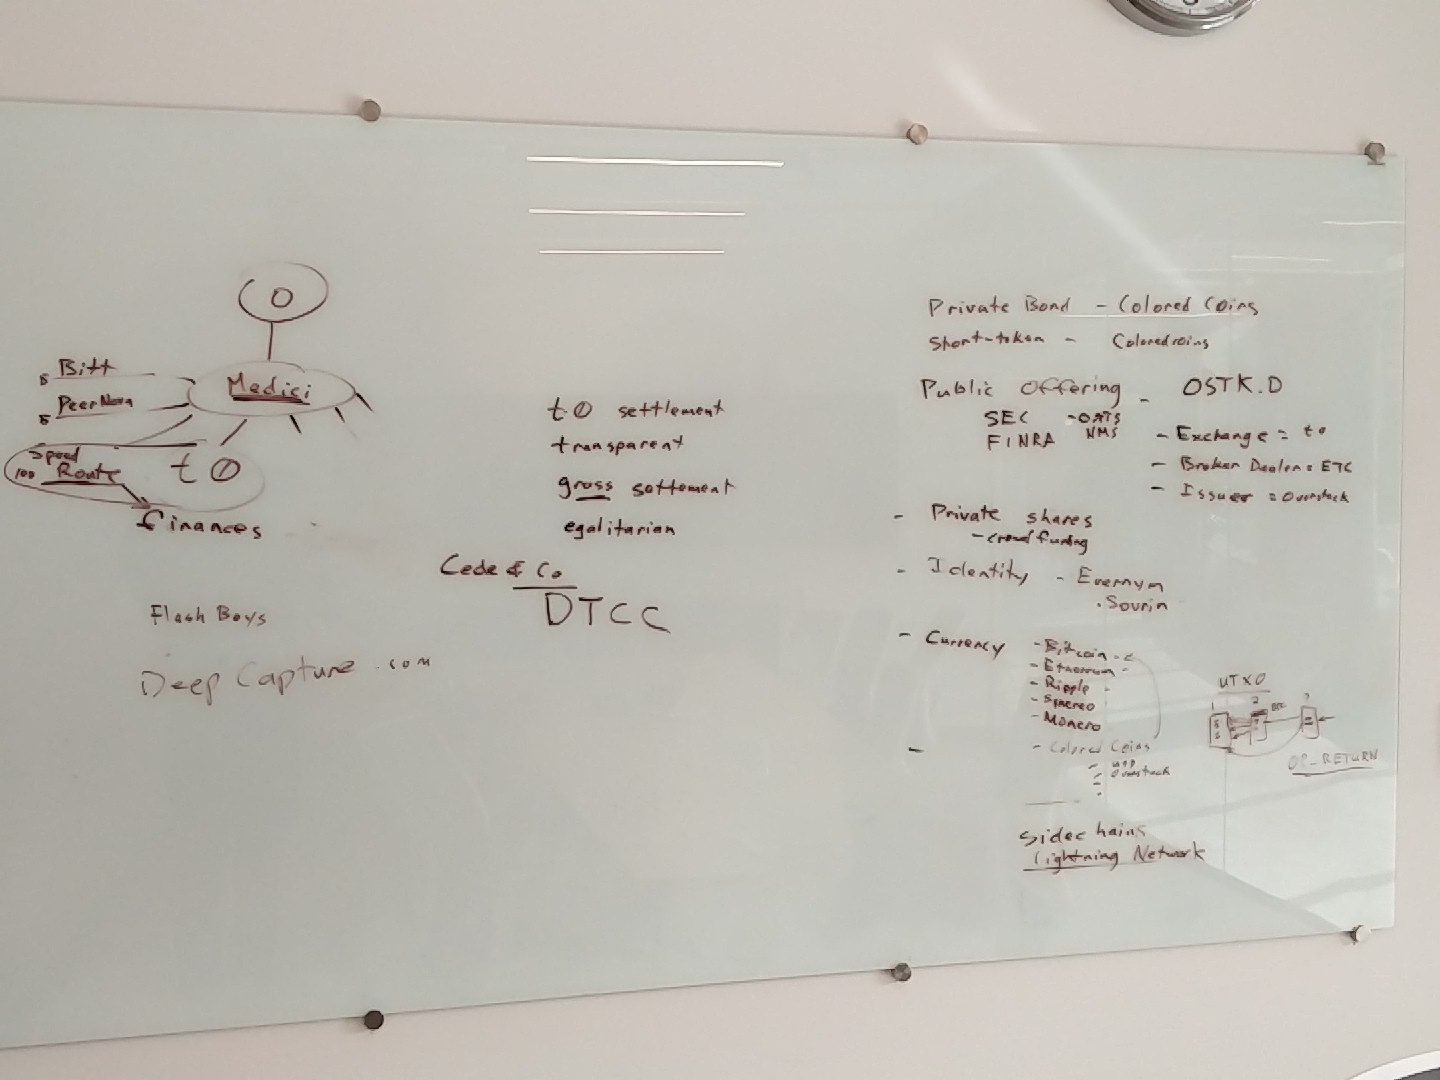 O
Medici
Bitt
PeerNova
Speed
100 Route
t0
finances
Flash Boys
Deep Capture.com
t.0 settlement
transparent
gross settlement
egalitarian
Cede & Co
DTCC
Private Bond - Colored Coins
Short-token - Coloredcoins
Public Offering - OSTK.D
SEC - OATS
FINRA NMS
- Exchange = t0
- Broker Dealer = ETC
- Issuer = Overstock
- Private shares
- crowdfunding
- Identity - Evernym
. Sovrin
- Currency - Bitcoin
- Ethereum -
- Ripple -
- Monero
- - Colored Coins
- USD
- Overstock
UTXO
1 2 3
OP_RETURN
Sidechains
Lightning Network